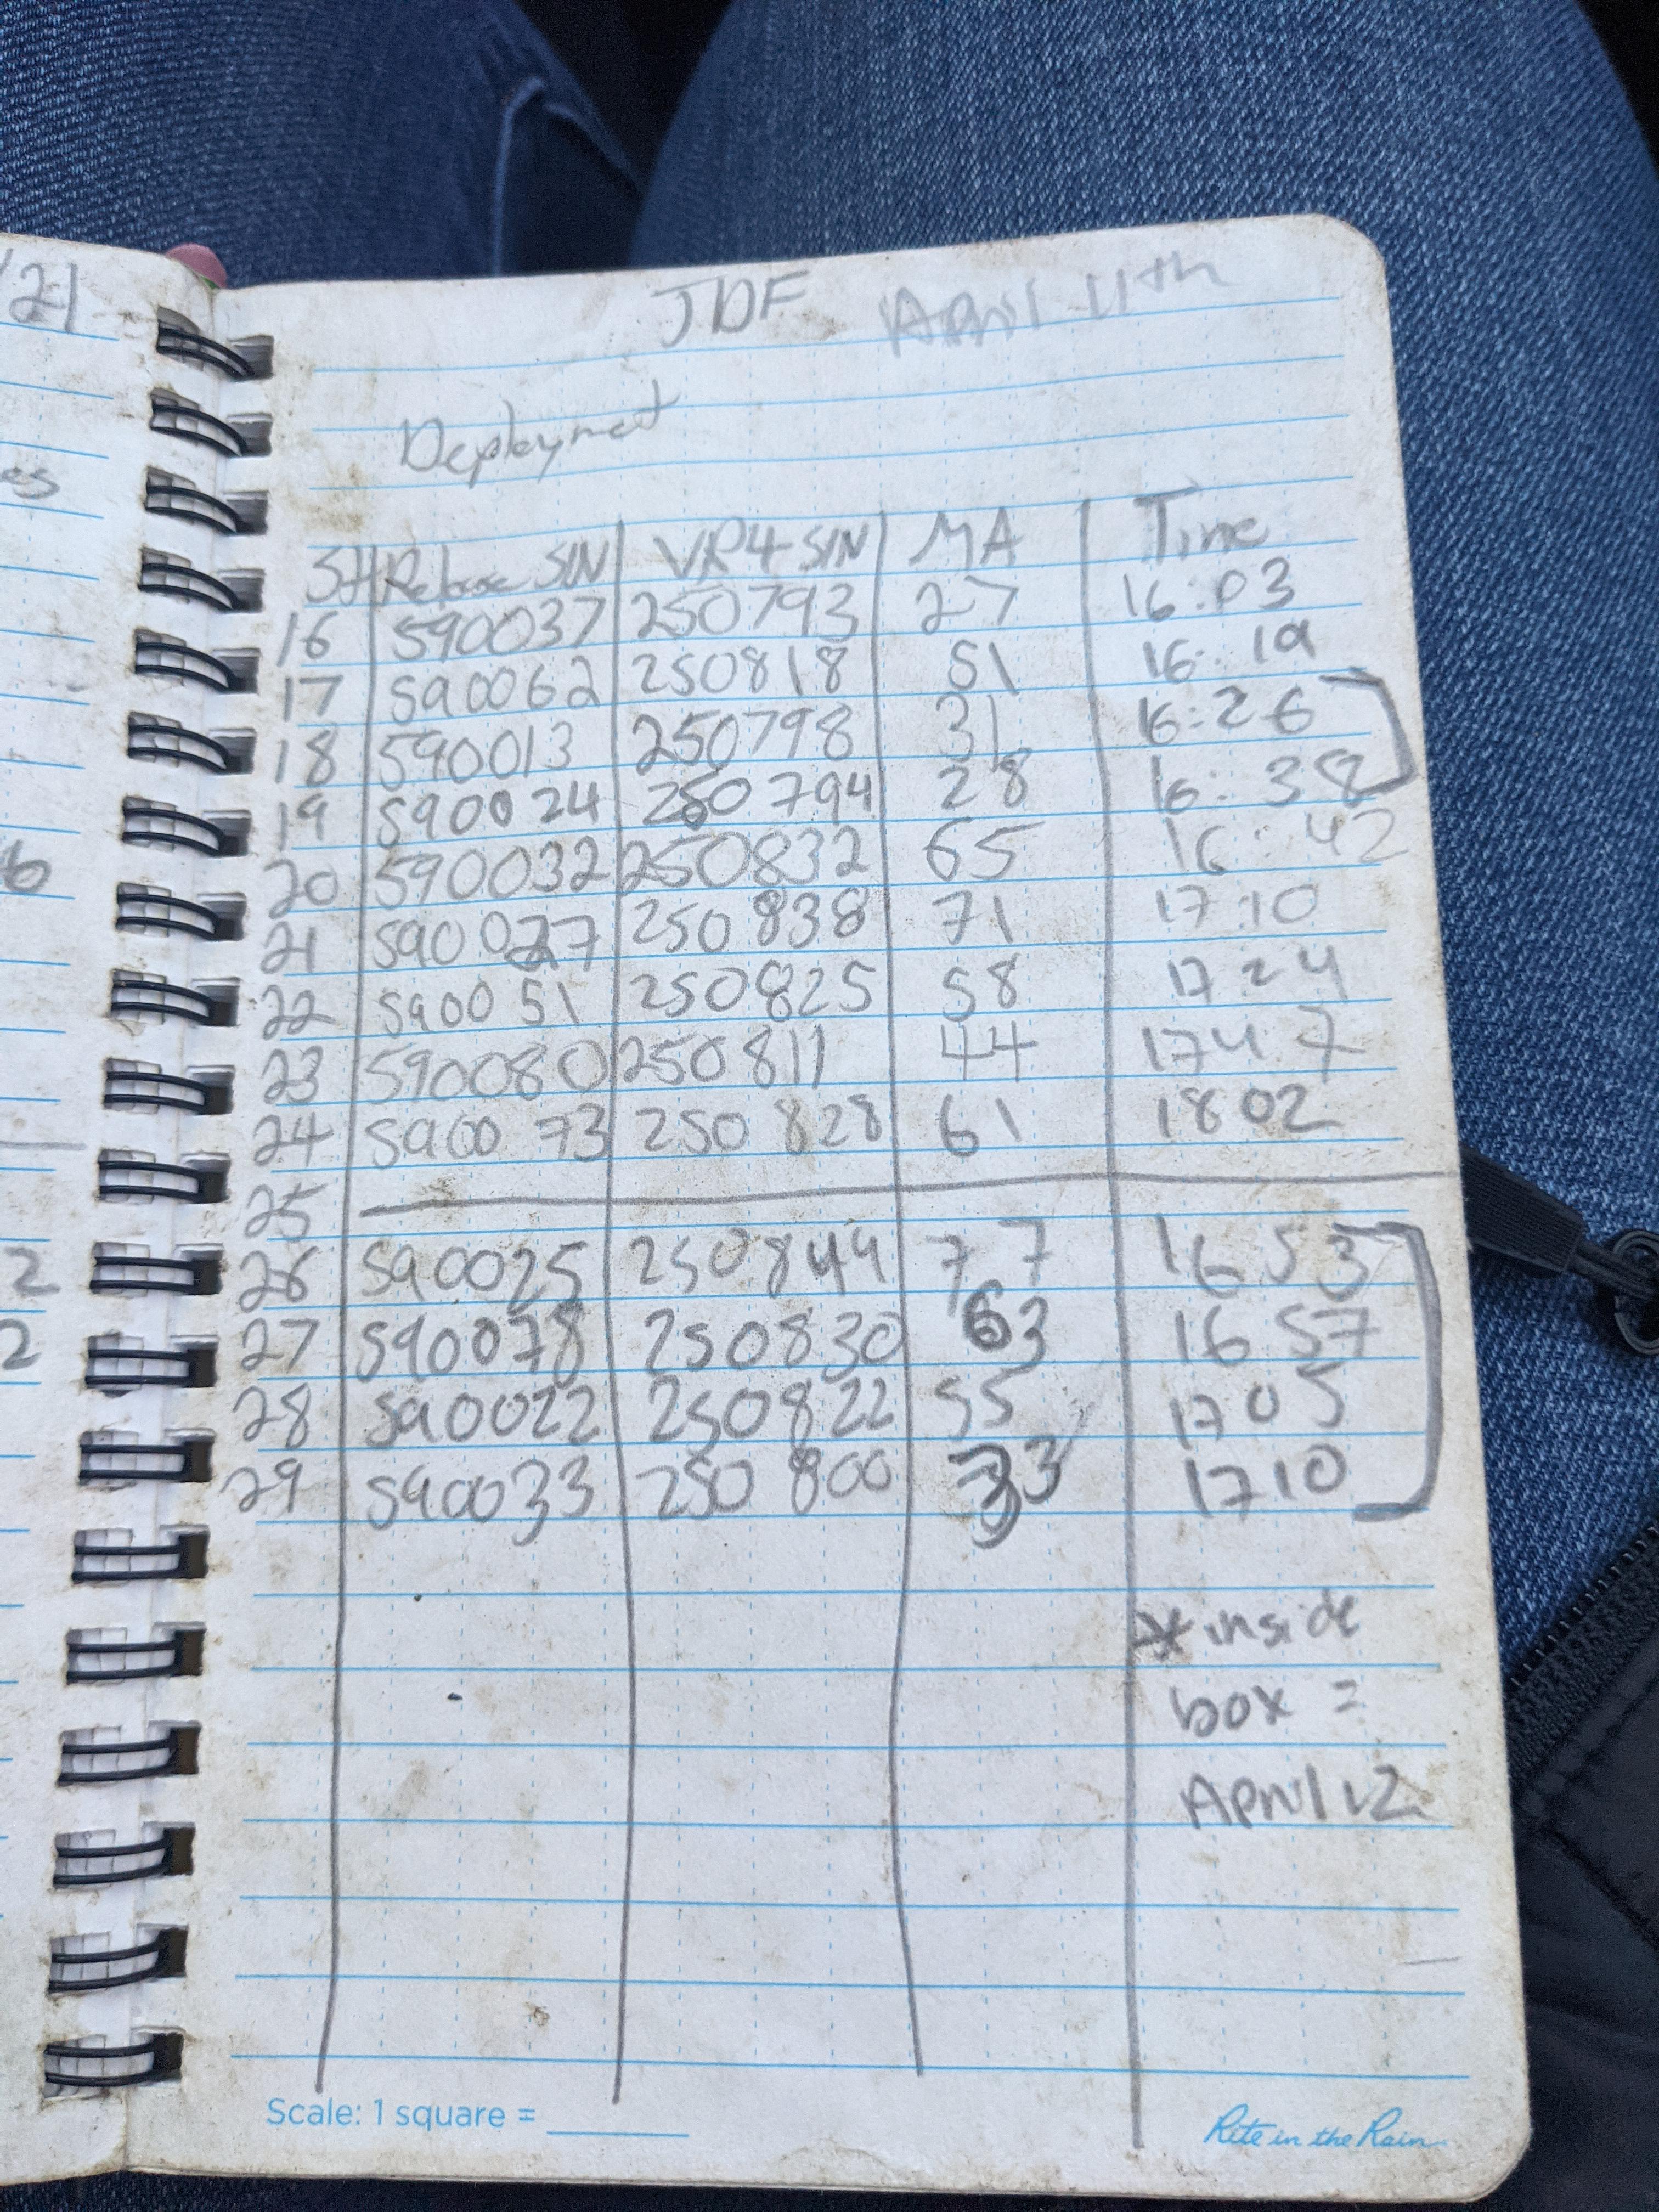 /21
es
6
2
2
JDF April 11th
Deployment
St Release S/N VR4 S/N MA Time
16 590037 250793 27 16:03
17 590062 250818 51 16:19
18 590013 250798 31 16:26
19 590024 250794 28 16:38
20 590032 250832 65 16:42
21 590027 250838 71 17:10
22 590051 250825 58 17 24
23 590080 250811 44 17 47
24 590073 250828 61 1802
25
26 590025 250844 77 16 53
27 590078 250830 63 16 57
28 590022 250822 55 1705
29 590033 250800 33 1710
* inside
box =
April 12
Scale: 1 square =
Rite in the Rain